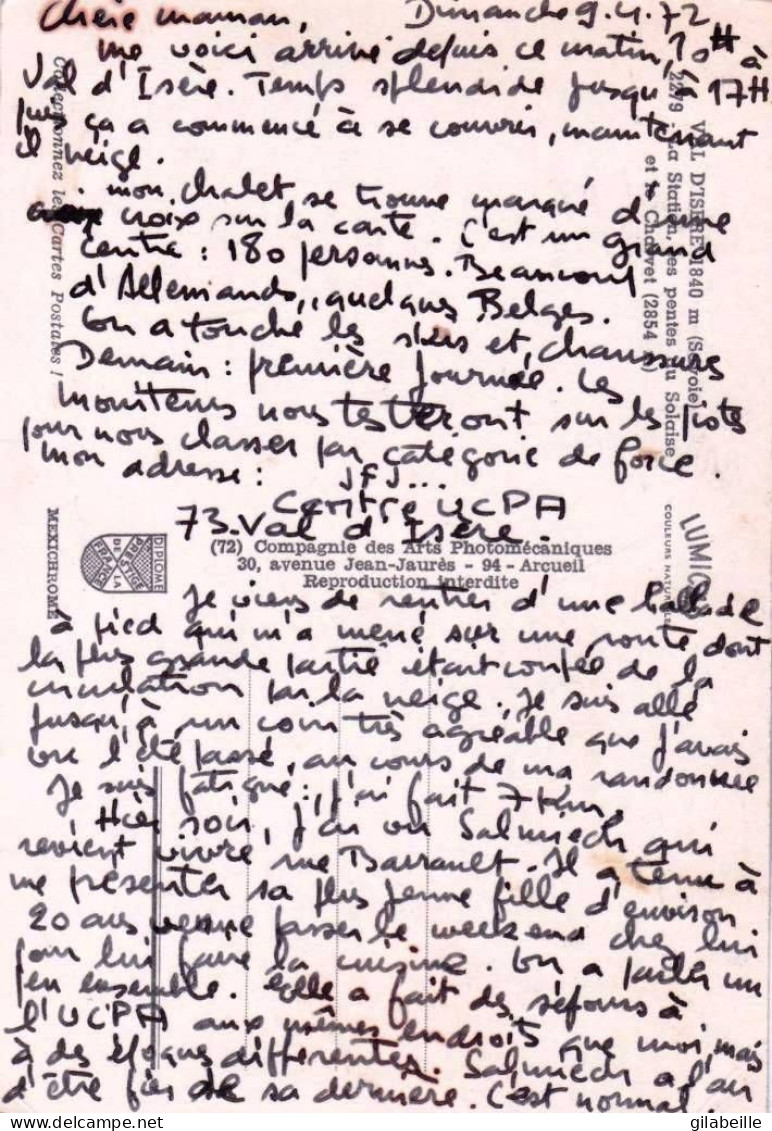 Chère maman, Dimanche 9.4.72
me voici arrivé depuis ce matin, 10H à
Val d'Isère. Temps splendide jusqu'à 17H
puis ça a commencé à se couvrir, maintenant
il neige.
mon chalet se trouve marqué d'une
croix sur la carte. C'est un grand
centre : 180 personnes. Beaucoup
d'Allemands, quelques Belges.
On a touché les skis et chaussures
Demain : première journée. Les
moniteurs nous testeront sur les pistes
pour nous classer par catégorie de force.
mon adresse : JFJ...
Centre UCPA
73-Val d'Isère.
Collectionnez les Cartes Postales !
VAL D'ISERE 1840 m (Savoie)
2279 La Station les pentes du Solaise
et le Charvet (2854 m)
MEXICHROME
DIPLOME PRESTIGE DE LA FRANCE
(72) Compagnie des Arts Photomécaniques
30, avenue Jean-Jaurès - 94 - Arcueil
Reproduction interdite
COULEURS NATURELLES
Je viens de rentrer d'une ballade
à pied qui m'a mené sur une route dont
la plus grande partie était coupée de la
circulation par la neige. Je suis allé
jusqu'à un coin très agréable que j'avais
vu l'été passé, au cours de ma randonnée
Je suis fatigué : j'ai fait 7 km.
Hier soir, j'ai vu Salmiech qui
revient vivre rue Barrault. Il a tenu à
me présenter sa plus jeune fille d'environ
20 ans venue passer le weekend chez lui
pour lui faire la cuisine. On a parlé un
peu ensemble. Elle a fait des séjours à
l'UCPA aux mêmes endroits que moi, mais
à des époques différentes. Salmiech a l'air
d'être fier de sa dernière. C'est normal.
delcampe.net
gilabeille